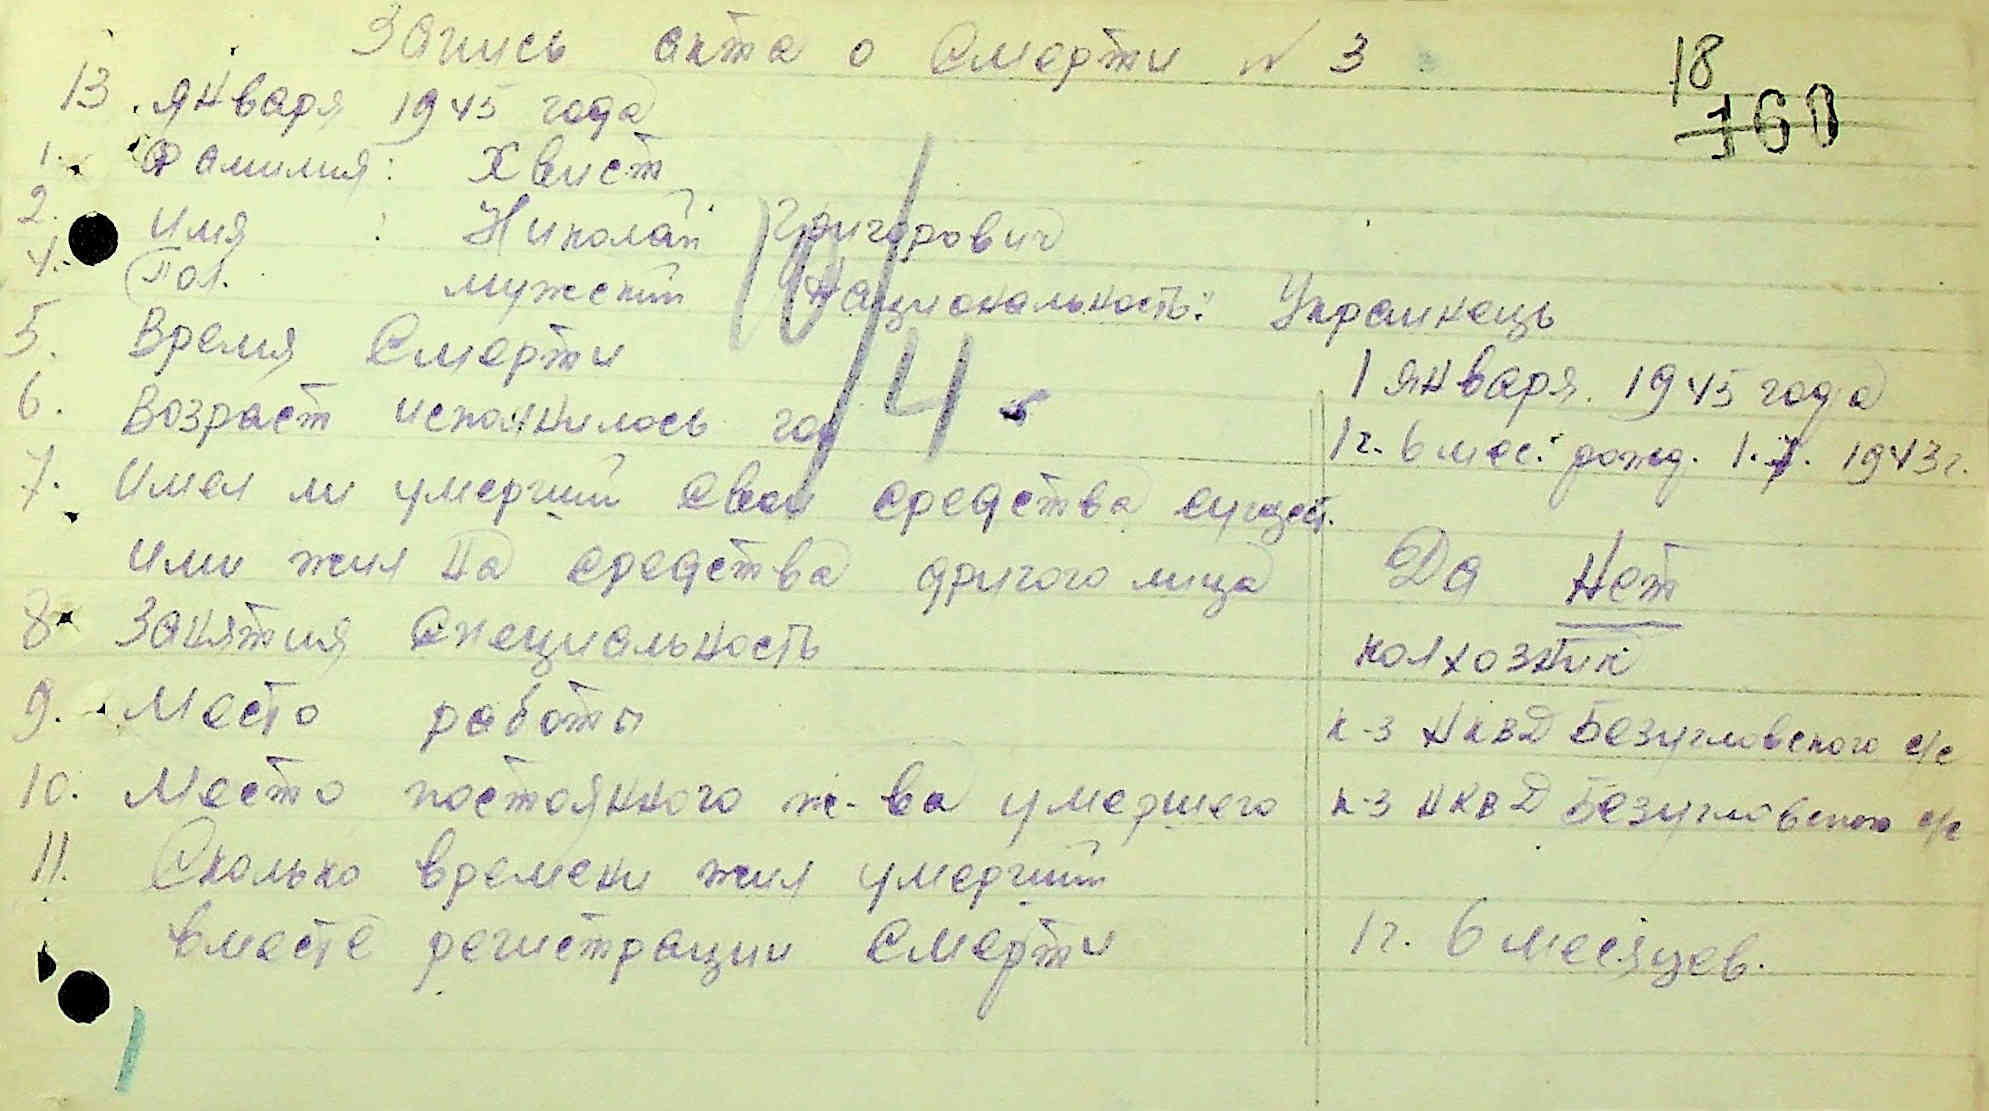 Запись акта о Смерти № 3
18
160
13 января 1945 года
1. Фамилия: Хвист
2. Имя : Николай Григорович
4. Пол. мужский Национальность: Украинець
5. Время Смерти 1 января. 1945 года
6. Возраст исполнилось год 1г. 6 мес. рожд. 1.7. 1943г.
7. Имел ли умерший свои средства сущест.
или жил на средства другого лица Да Нет
8. Занятия специальность колхозник
9. Место работы к-з НКВД Безугловского с/с
10. Место постоянного ж-ва умершего к-з НКВД Безугловского с/с
11. Сколько времени жил умерший
вместе регистрации Смерти 1г. 6 месяцев.
10/4